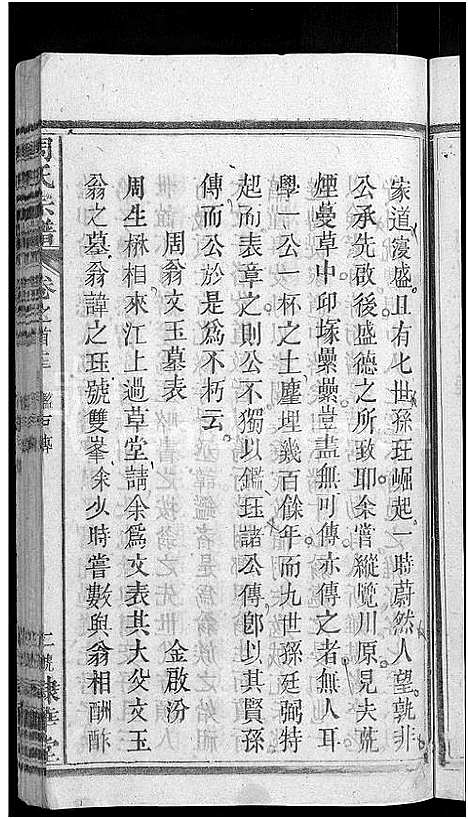 家道寖盛且有七世孫珏崛起一時蔚然人望孰非
公承先啟後盛德之所致耶余嘗縱覽川原見夫荒
煙蔓草中邱塚纍纍豈盡無可傳亦傳之者無人耳
學一公一杯之土塵埋幾百餘年而九世孫廷弼特
起而表章之則公不獨以鑑珏諸公傳卽以其賢孫
傳而公於是為不朽云
周翁文玉墓表 金啟汾
周生楙相來江上過草堂請余爲文表其大父文玉
翁之墓翁諱之珏號雙峯余少時嘗數與翁相酬酢
周氏宗譜 卷之首三